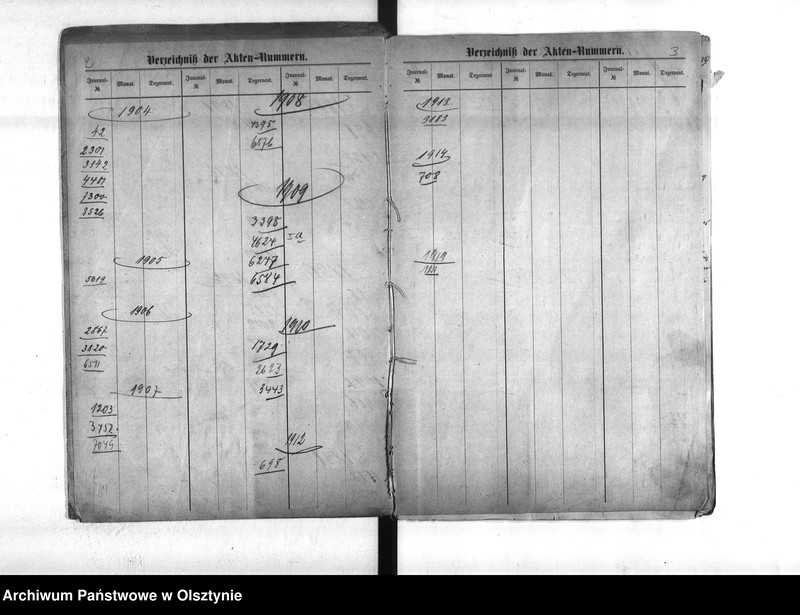 2
Verzeichniß der Akten-Nummern.
Journal-№ Monat. Dezernent. Journal-№ Monat. Dezernent. Journal-№ Monat. Dezernent.
1904
42
2301
3142
4481
7300
8526
1905
5619
1906
2867
3820
6511
1907
1203
3752
7045
1908
4395
6576
1909
3398
4624 I a
6247
6584
1910
1729
2623
3443
1912
698
3
Verzeichniß der Akten-Nummern.
Journal-№ Monat. Dezernent. Journal-№ Monat. Dezernent. Journal-№ Monat. Dezernent.
1913
3183
1914
708
1919
Archiwum Państwowe w Olsztynie